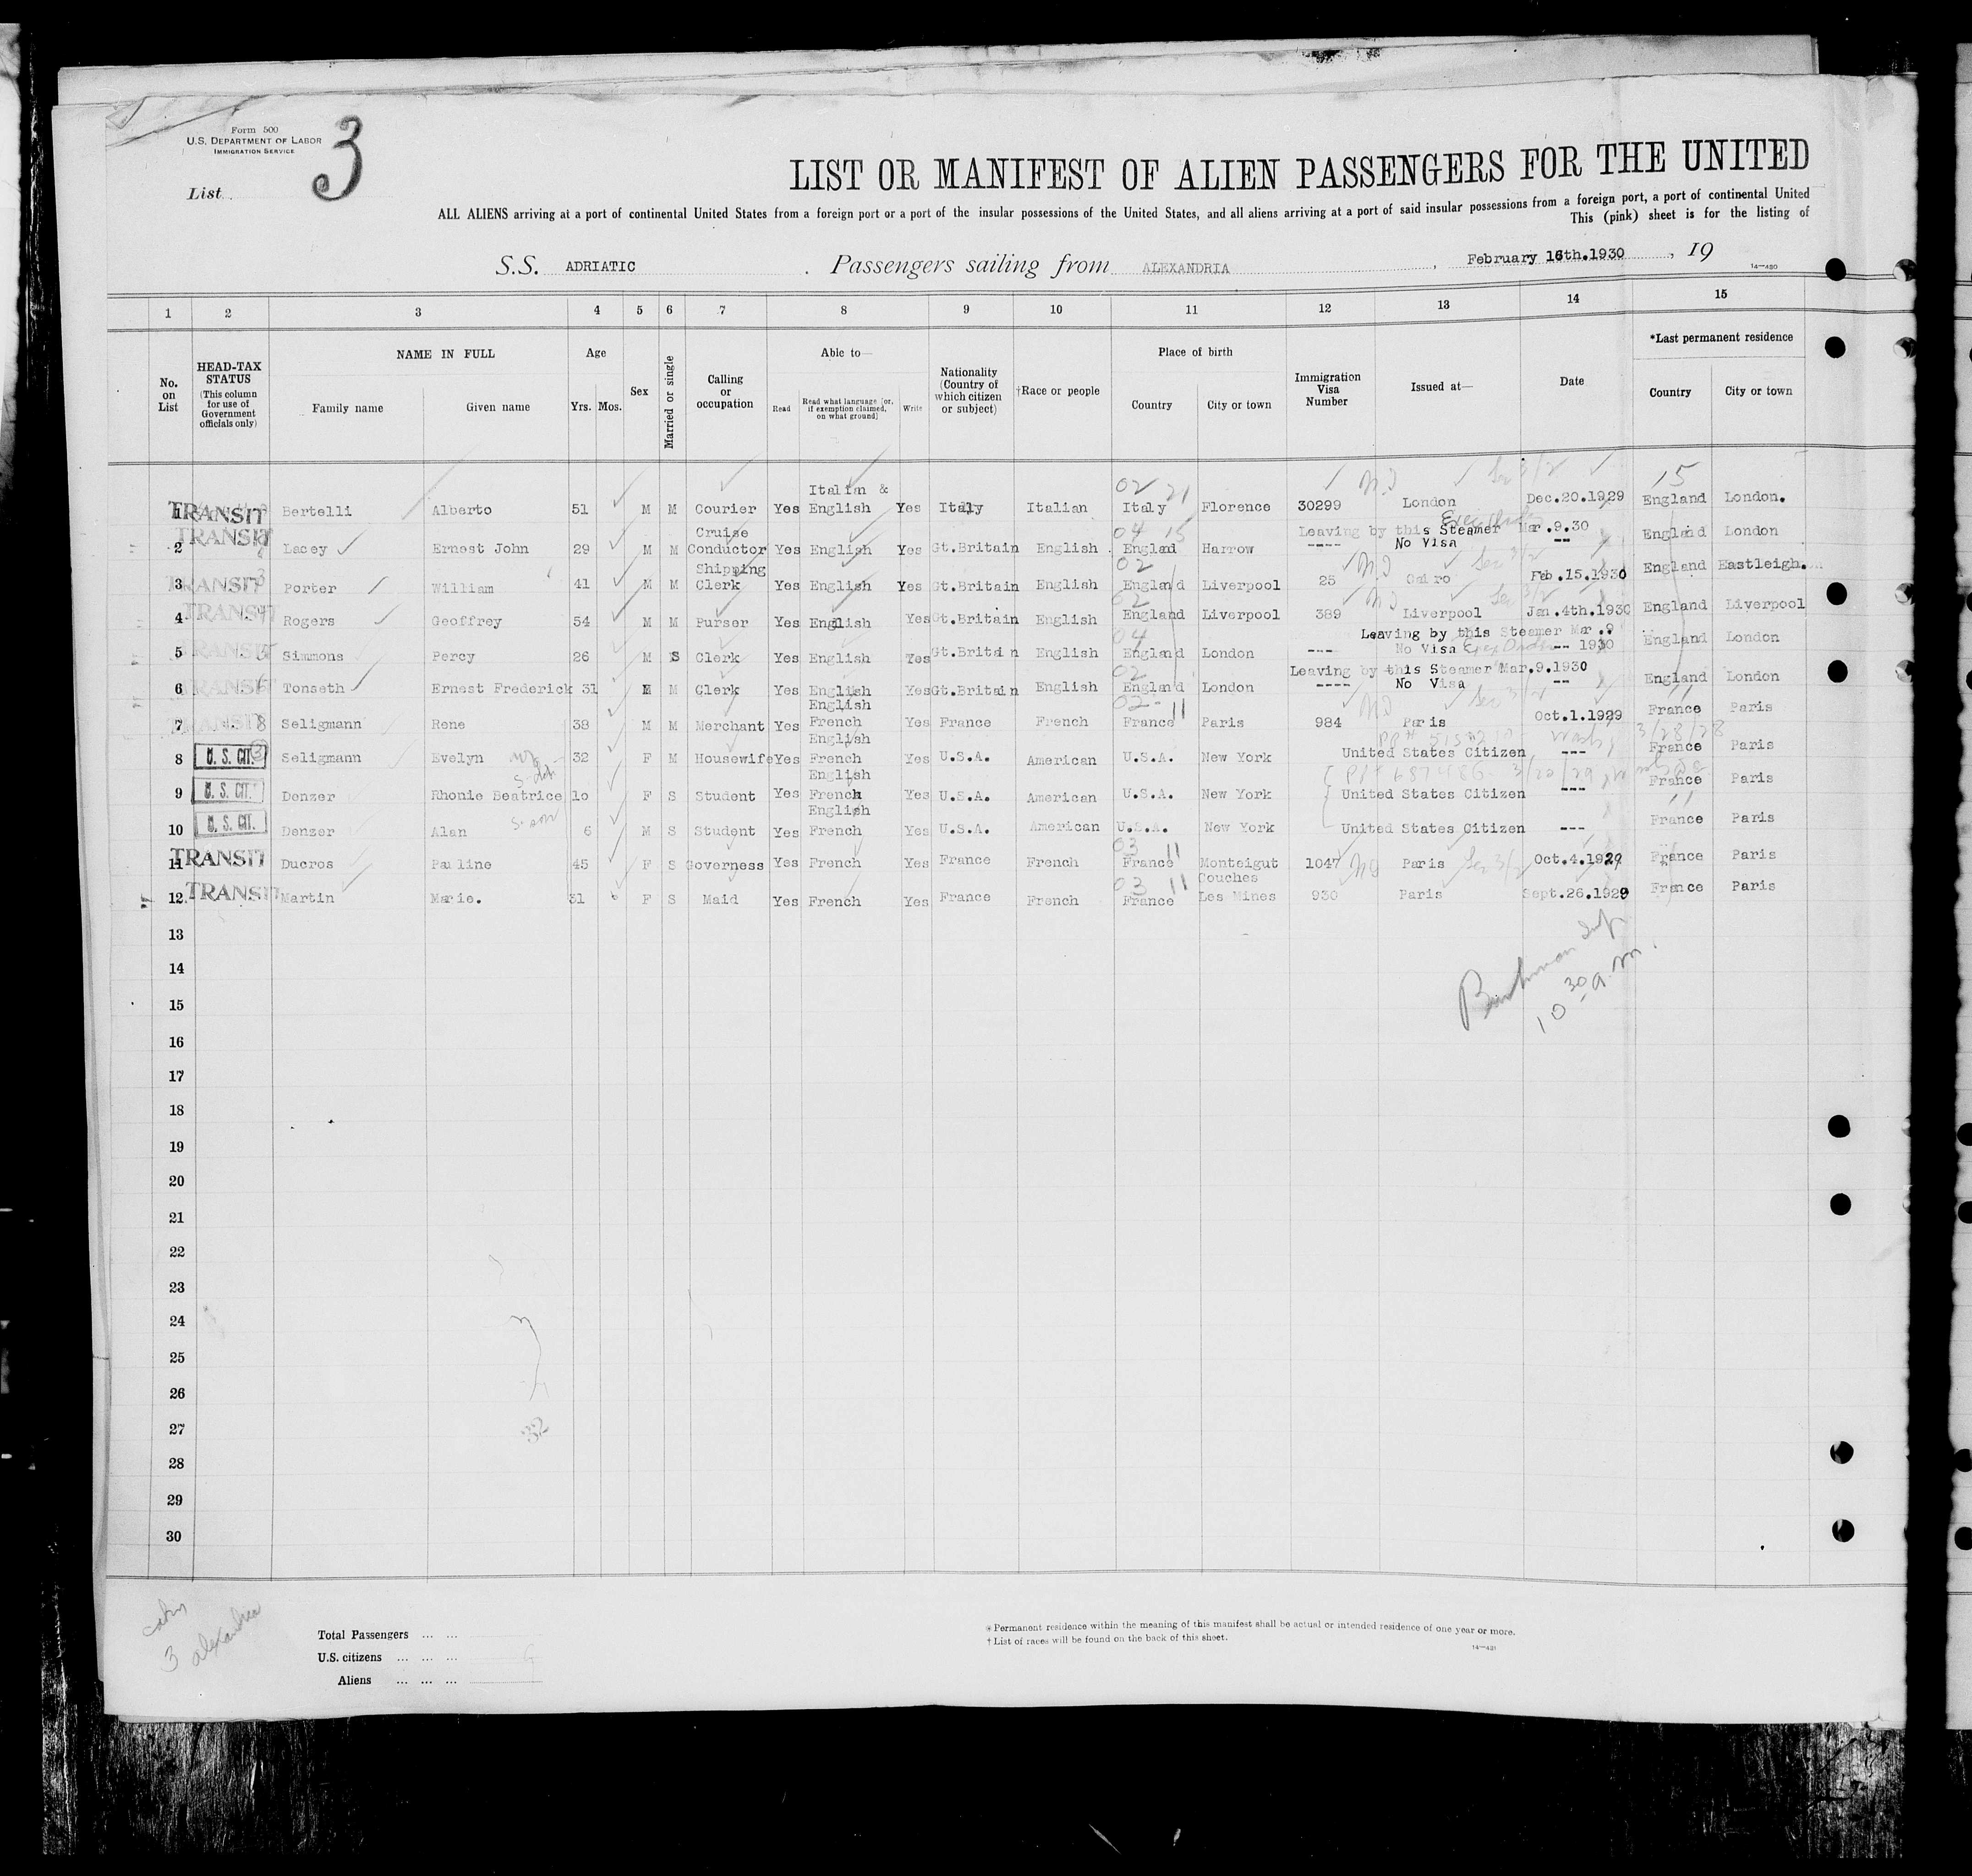 Form 500
U.S. DEPARTMENT OF LABOR
IMMIGRATION SERVICE
List 3
LIST OR MANIFEST OF ALIEN PASSENGERS FOR THE UNITED
ALL ALIENS arriving at a port of continental United States from a foreign port or a port of the insular possessions of the United States, and all aliens arriving at a port of said insular possessions from a foreign port, a port of continental United
This (pink) sheet is for the listing of
S.S. ADRIATIC . Passengers sailing from ALEXANDRIA , February 16th.1930 , 19
14—430
1 2 3 4 5 6 7 8 9 10 11 12 13 14 15
No. on List
HEAD-TAX STATUS (This column for use of Government officials only)
NAME IN FULL
Family name Given name
Age
Yrs. Mos.
Sex
Married or single
Calling or occupation
Able to—
Read Read what language [or, if exemption claimed, on what ground] Write
Nationality (Country of which citizen or subject)
†Race or people
Place of birth
Country City or town
Immigration Visa Number
Issued at—
Date
*Last permanent residence
Country City or town
1 TRANSIT Bertelli Alberto 51 M M Courier Yes Italian & English Yes Italy Italian Italy Florence 30299 London Dec.20.1929 England London.
2 TRANSIT Lacey Ernest John 29 M M Cruise Conductor Yes English Yes Gt.Britain English England Harrow Leaving by this Steamer Mar.9.30 ---- No Visa -- England London
3 TRANSIT Porter William 41 M M Shipping Clerk Yes English Yes Gt.Britain English England Liverpool 25 Cairo Feb.15.1930 England Eastleigh.
4 TRANSIT Rogers Geoffrey 54 M M Purser Yes English Yes Gt.Britain English England Liverpool 389 Liverpool Jan.4th.1930 England Liverpool
5 TRANSIT Simmons Percy 26 M S Clerk Yes English Yes Gt.Britain English England London Leaving by this Steamer Mar.9 --- No Visa -- 1930 England London
6 TRANSIT Tonseth Ernest Frederick 31 M M Clerk Yes English Yes Gt.Britain English England London Leaving by this Steamer Mar.9.1930 ---- No Visa -- England London
7 TRANSIT Seligmann Rene 38 M M Merchant Yes English French Yes France French France Paris 984 Paris Oct.1.1929 France Paris
8 U. S. CIT. Seligmann Evelyn 32 F M Housewife Yes English French Yes U.S.A. American U.S.A. New York United States Citizen --- France Paris
9 U. S. CIT. Denzer Rhonie Beatrice 10 F S Student Yes English French Yes U.S.A. American U.S.A. New York United States Citizen --- France Paris
10 U. S. CIT. Denzer Alan 6 M S Student Yes English French Yes U.S.A. American U.S.A. New York United States Citizen --- France Paris
11 TRANSIT Ducros Pauline 45 F S Governess Yes French Yes France French France Monteigut 1047 Paris Oct.4.1929 France Paris
12 TRANSIT Martin Marie. 31 F S Maid Yes French Yes France French France Couches Les Mines 930 Paris Sept.26.1929 France Paris
13
10 30 a.m.
14
15
16
17
18
19
20
21
22
23
24
25
26
27
28
29
30
3 alexandria
Total Passengers ... ...
U.S. citizens ... ... ...
Aliens ... ... ...
* Permanent residence within the meaning of this manifest shall be actual or intended residence of one year or more.
† List of races will be found on the back of this sheet.
14—431